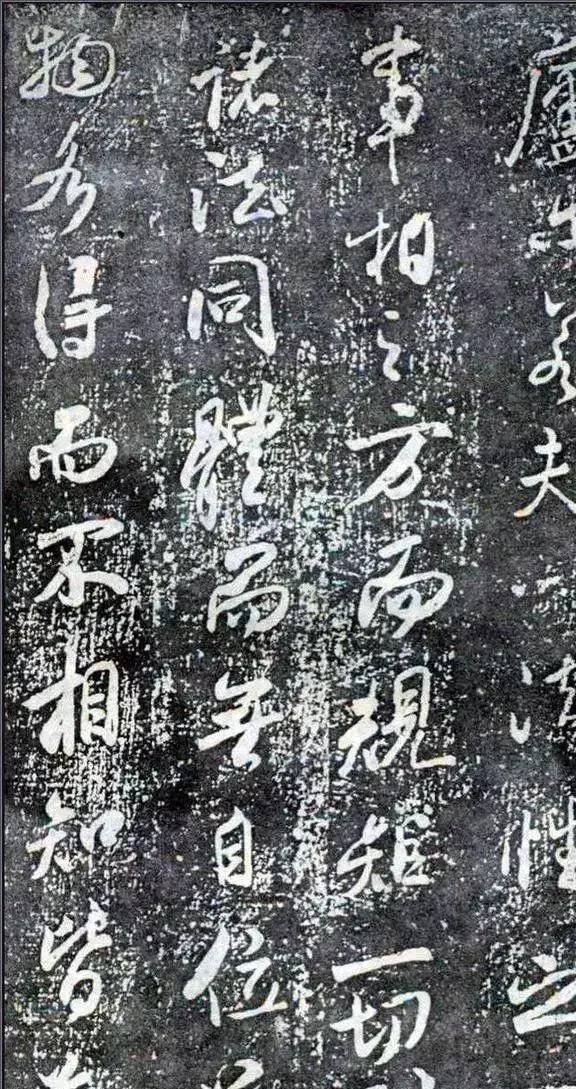 廬若夫法性之
事相之方而規矩一切
諸法同體而無自位
物各得而不相知皆